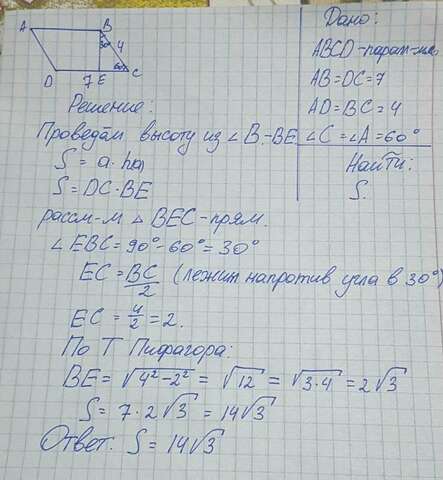 A B
30° 4
60°
D 7 E C
Дано:
ABCD-парал-мм
AB=DC=7
AD=BC=4
∠C=∠A=60°
Найти:
S.
Решение:
Проведём высоту из ∠B-BE
S=a·ha
S=DC·BE
рассм-м △BEC-прям.
∠EBC=90°-60°=30°
EC=BC/2 (лежит напротив угла в 30°)
EC=4/2=2.
По Т Пифагора:
BE=√4²-2²=√12=√3·4=2√3
S=7·2√3=14√3
Ответ: S=14√3